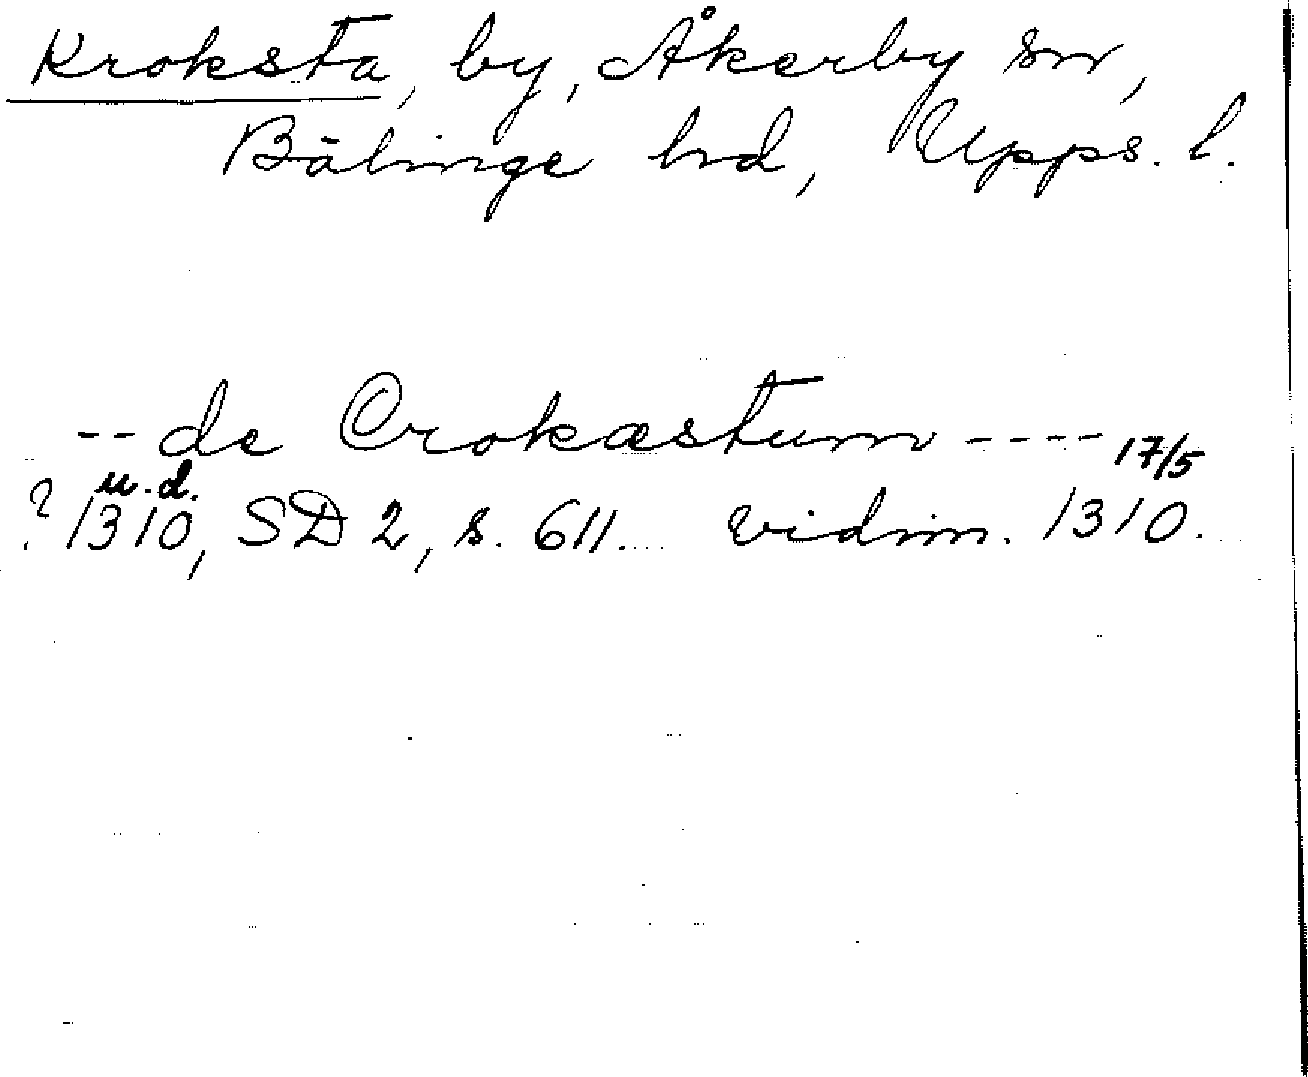 Kroksta, by, Åkerby sn,
Bälinge hd, Upps. l.
-- de Crokæstum ----
? 1310, u.d. SD 2, s. 611. vidim. 17/5 1310.